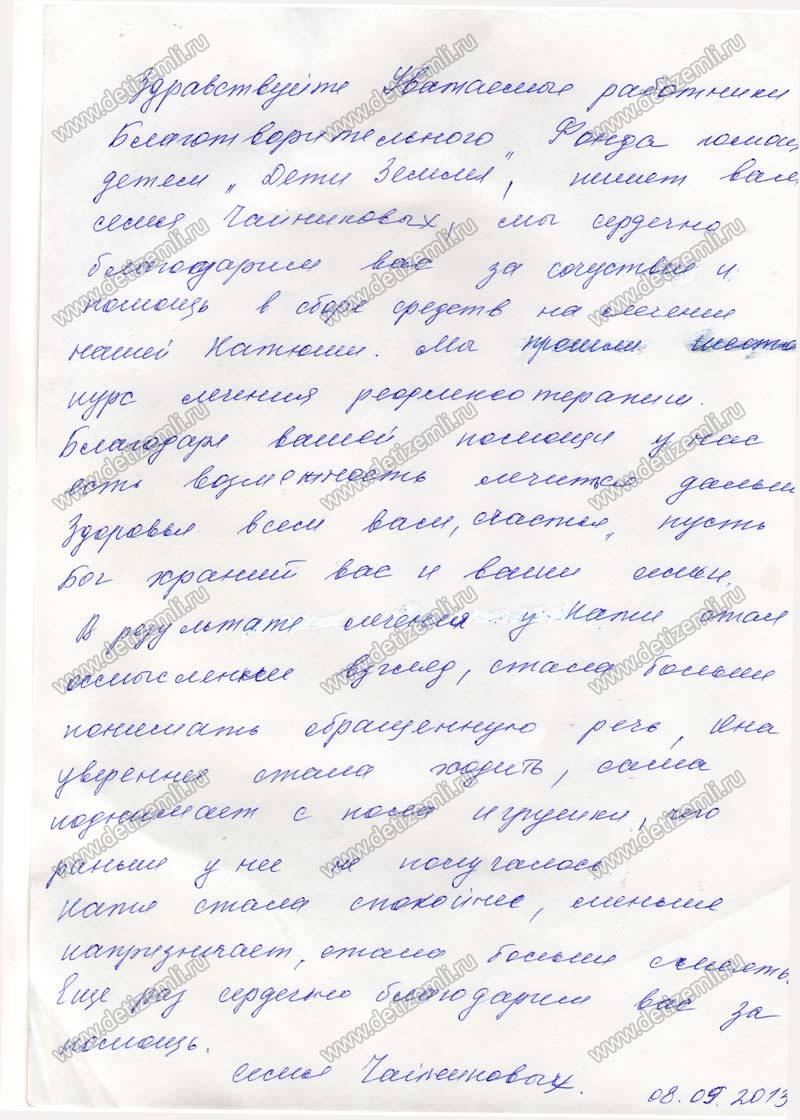 Здравствуйте Уважаемые работники
Благотворительного Фонда помощ
детем „Дети Земли", пишет вам
семья Чайниковых, мы сердечно
благодарим вас за сочуствие и
помощь в сборе средств на лечение
нашей Катюши. Мы прошли
курс лечения
Благодаря вашей помощи у нас
есть возможность лечиться дальше
Здоровья всем вам, счастья, пусть
Бог храний вас и ваши семьи.
В результате лечения у Кати стал
осмысленный взгляд, стала больше
понимать обращенную речь, Она
увереннее стала ходить, сама
поднимает с пола игрушки, чего
раньше у нее не получалось
Катя стала спокойнее, меньше
капризничает, стала больше
Еще раз сердечно благодарим вас за
помощь.
семья Чайниковых.
08.09.2013
www.detizemli.ru